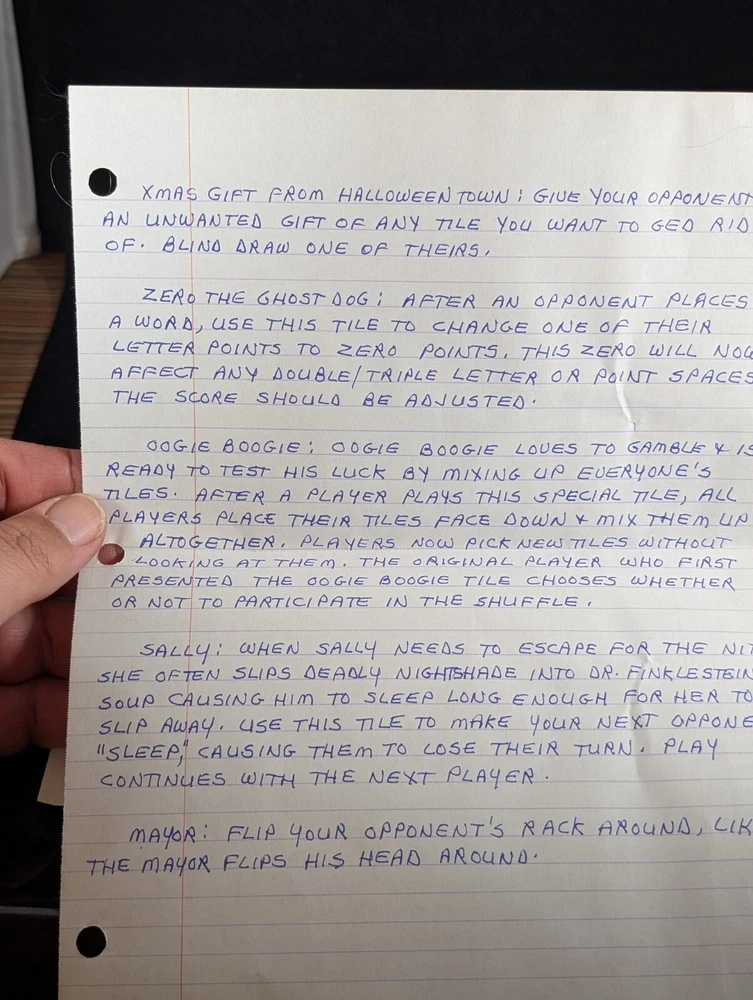 XMAS GIFT FROM HALLOWEEN TOWN: GIVE YOUR OPPONENT
AN UNWANTED GIFT OF ANY TILE YOU WANT TO GED RID
OF. BLIND DRAW ONE OF THEIRS.
ZERO THE GHOST DOG: AFTER AN OPPONENT PLACES
A WORD, USE THIS TILE TO CHANGE ONE OF THEIR
LETTER POINTS TO ZERO POINTS. THIS ZERO WILL NOW
AFFECT ANY DOUBLE/TRIPLE LETTER OR POINT SPACES
THE SCORE SHOULD BE ADJUSTED.
OOGIE BOOGIE: OOGIE BOOGIE LOVES TO GAMBLE & IS
READY TO TEST HIS LUCK BY MIXING UP EVERYONE'S
TILES. AFTER A PLAYER PLAYS THIS SPECIAL TILE, ALL
PLAYERS PLACE THEIR TILES FACE DOWN & MIX THEM UP
ALTOGETHER. PLAYERS NOW PICK NEW TILES WITHOUT
LOOKING AT THEM. THE ORIGINAL PLAYER WHO FIRST
PRESENTED THE OOGIE BOOGIE TILE CHOOSES WHETHER
OR NOT TO PARTICIPATE IN THE SHUFFLE.
SALLY: WHEN SALLY NEEDS TO ESCAPE FOR THE NI
SHE OFTEN SLIPS DEADLY NIGHTSHADE INTO DR. FINKLESTEIN
SOUP CAUSING HIM TO SLEEP LONG ENOUGH FOR HER TO
SLIP AWAY. USE THIS TILE TO MAKE YOUR NEXT OPPONE
"SLEEP," CAUSING THEM TO LOSE THEIR TURN. PLAY
CONTINUES WITH THE NEXT PLAYER.
MAYOR: FLIP YOUR OPPONENT'S RACK AROUND, LIK
THE MAYOR FLIPS HIS HEAD AROUND.